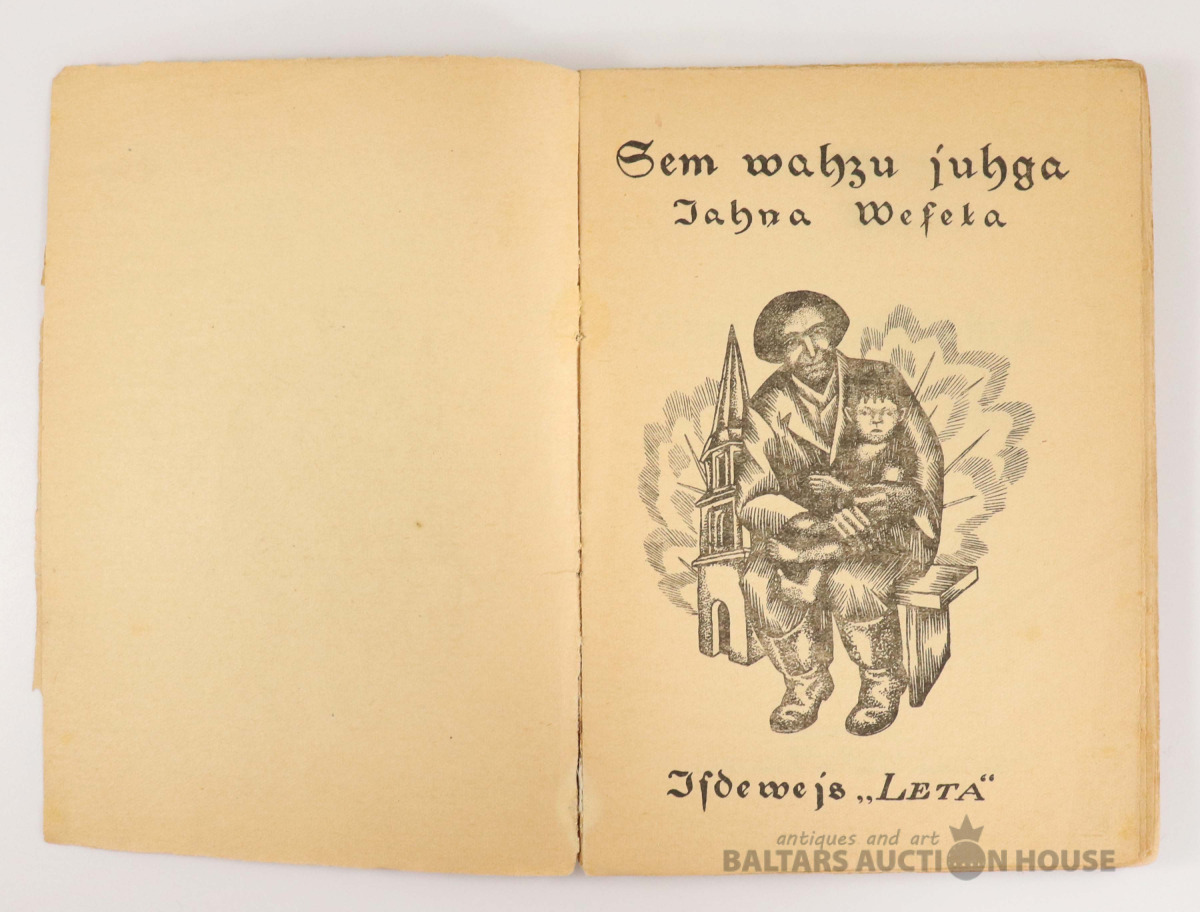 Sem wahzu juhga
Jahna Weseła
Iſdewejs „LETA“
antiques and art
BALTARS AUCTION HOUSE